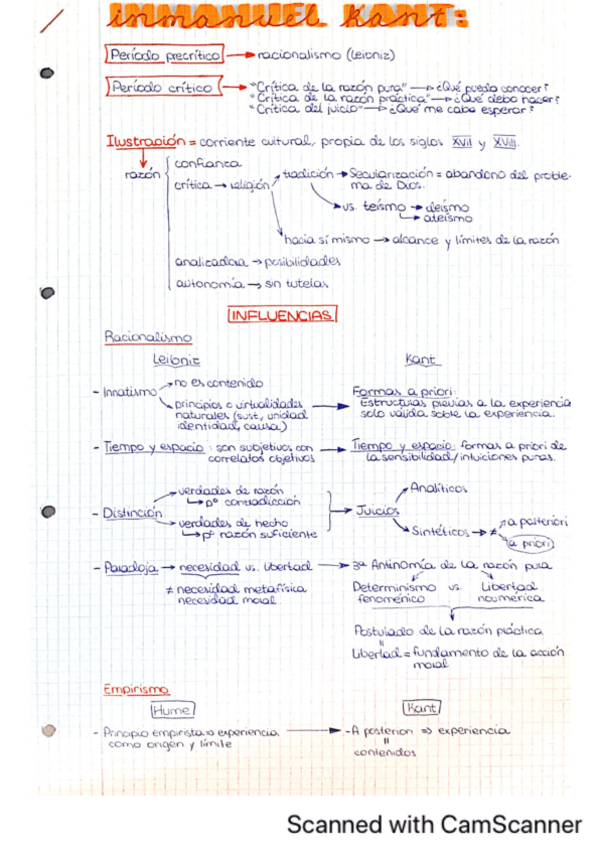 INMANUEL KANT:
Período precrítico → racionalismo (Leibniz)
Período crítico → "Crítica de la razón pura" → ¿Qué puedo conocer?
"Crítica de la razón práctica" → ¿Qué debo hacer?
"Crítica del juicio" → ¿Qué me cabe esperar?
Ilustración = corriente cultural, propia de los siglos XVII y XVIII.
razón
confianza
crítica → religión
tradición → Secularización = abandono del proble-
ma de Dios.
vs. teísmo → deísmo
→ ateísmo
hacia sí mismo → alcance y límites de la razón
analizadora → posibilidades
autonomía → sin tutelas
INFLUENCIAS
Racionalismo
Leibniz
Kant
- Innatismo → no es contenido
→ principios o virtualidades
naturales (sust, unidad
identidad, causa)
→ Formas a priori:
Estructuras previas a la experiencia
solo válida sobre la experiencia.
- Tiempo y espacio: son subjetivos con
correlatos objetivos
→ Tiempo y espacio: formas a priori de
la sensibilidad/intuiciones puras.
- Distinción → verdades de razón
↳ pº contradicción
→ verdades de hecho
↳ pº razón suficiente
→ Juicios → Analíticos
→ Sintéticos → ≠ a posteriori
a priori
- Paradoja → necesidad vs. libertad → 3ª Antinomia de la razón pura
≠ necesidad metafísica
necesidad moral
Determinismo vs. Libertad
fenoménico noumérica
Postulado de la razón práctica
=
Libertad = fundamento de la acción
moral
Empirismo
Hume
Kant
- Principio empirista ⇒ experiencia
como origen y límite
→ - A posteriori ⇒ experiencia
=
contenidos
Scanned with CamScanner